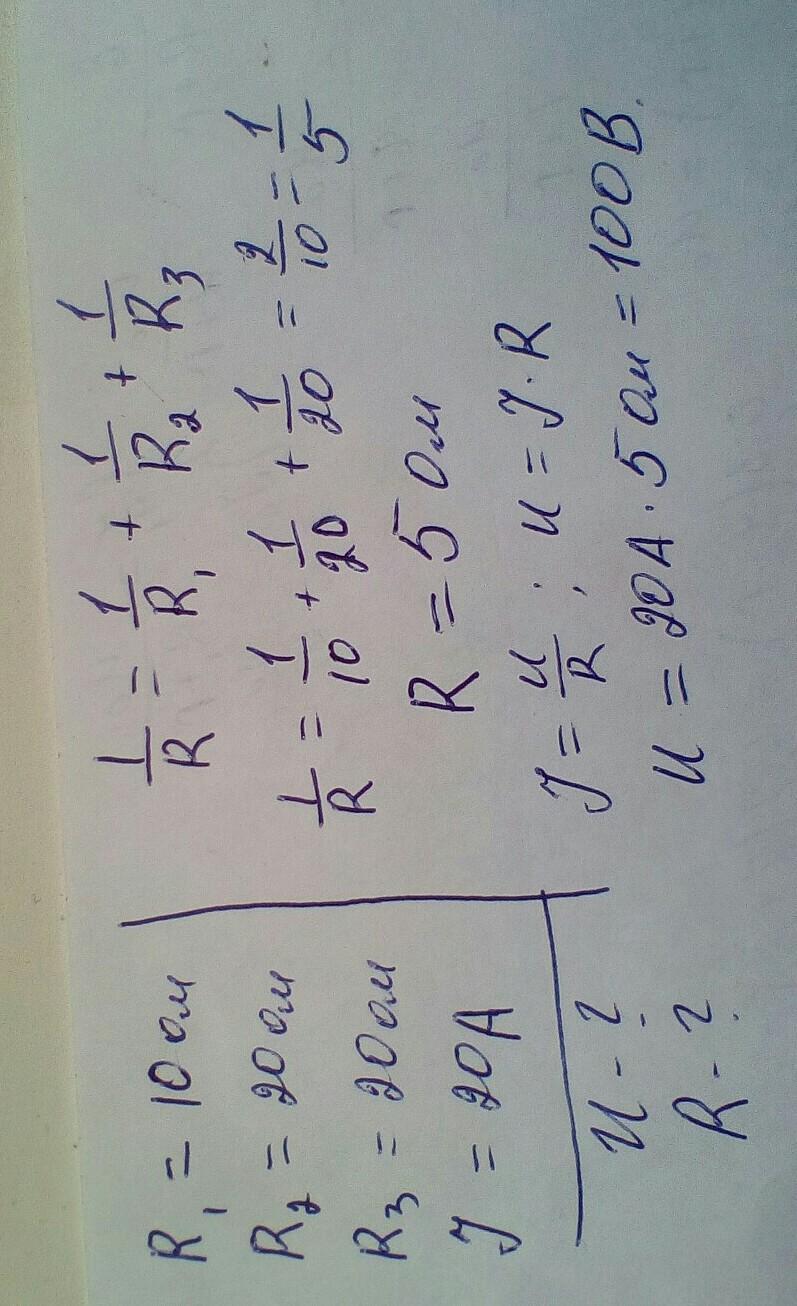 R₁ = 10 ом
R₂ = 20 ом
R₃ = 20 ом
J = 20 А
U - ?
R - ?
1/R = 1/R₁ + 1/R₂ + 1/R₃
1/R = 1/10 + 1/20 + 1/20 = 2/10 = 1/5
R = 5 ом
J = U/R ; U = J · R
U = 20А · 5 ом = 100 В.